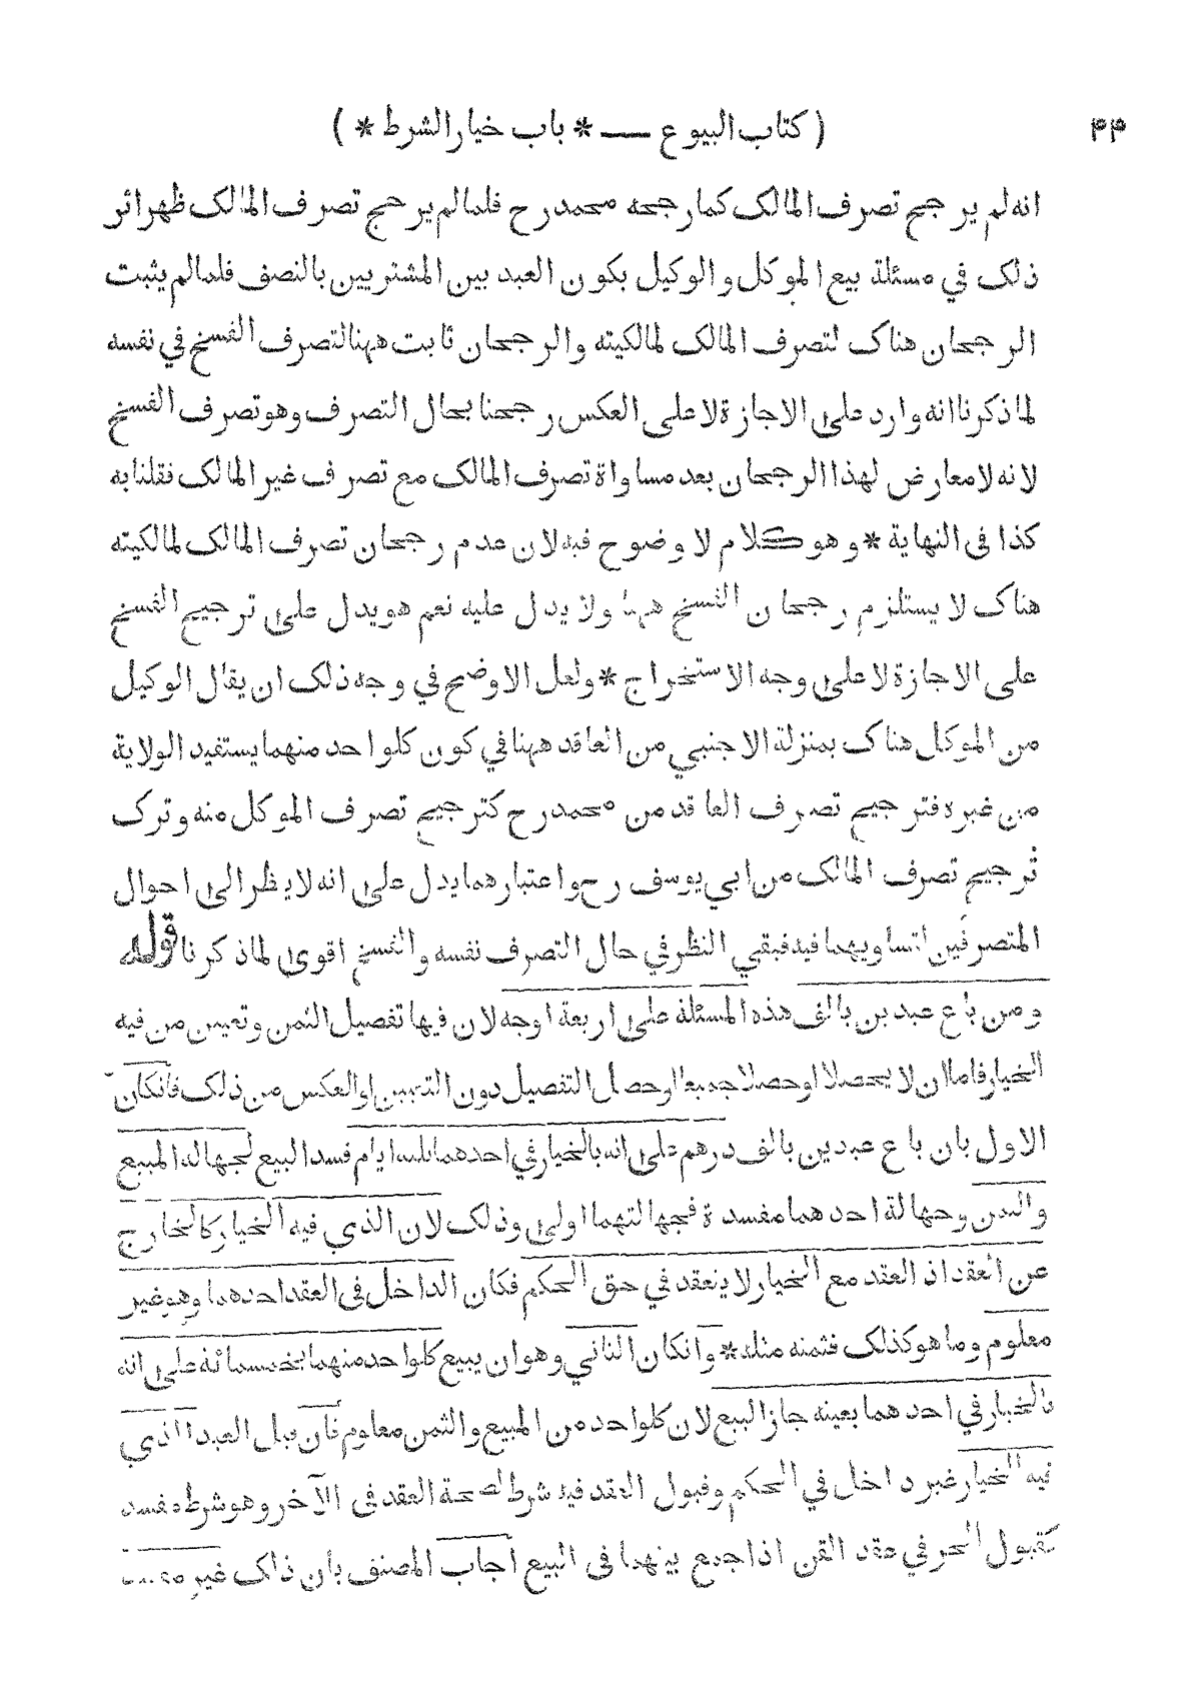 ( كتاب البيوع — * باب خيار الشرط * ) ۴۴
انه لم يرجح تصرف المالك كمارجحه محمدرح فلما لم يرجح تصرف المالك ظهر اثر
ذلك في مسئلة بيع الموكل والوكيل بكون العبد بين المشتريين بالنصف فلما لم يثبت
الرجحان هناك لتصرف المالك لمالكيته والرجحان ثابت ههنا لتصرف الفسخ في نفسه
لما ذكرنا انه وارد على الاجازة لا على العكس رجحنا بحال التصرف وهو تصرف الفسخ
لانه لا معارض لهذا الرجحان بعد مساواة تصرف المالك مع تصرف غير المالك فقلنا به
كذا في النهاية * وهو كلام لا وضوح فيه لان عدم رجحان تصرف المالك لمالكيته
هناك لا يستلزم رجحان الفسخ ههنا ولا يدل عليه نعم هو يدل على ترجيح الفسخ
على الاجازة لا على وجه الاستخراج * ولعل الاوضح في وجه ذلك ان يقال الوكيل
من الموكل هناك بمنزلة الاجنبي من العاقد ههنا في كون كلواحد منهما يستفيد الولاية
من غيره فترجيح تصرف العاقد من محمدرح كترجيح تصرف الموكل منه وترك
ترجيح تصرف المالك من ابي يوسف رح واعتبارهما يدل على انه لا ينظر الى احوال
المتصرفين لتساويهما فيه فبقي النظر في حال التصرف نفسه والفسخ اقوى لما ذكرنا قوله
ومن باع عبدين بالف هذه المسئلة على اربعة اوجه لان فيها تفصيل الثمن وتعيين من فيه
الخيار فاما ان لا يحصلا او حصلا جميعا او حصل التفصيل دون التعيين او العكس من ذلك فانكان
الاول بان باع عبدين بالف درهم على انه بالخيار في احدهما ثلثة ايام فسد البيع لجهالة المبيع
والثمن وجهالة احدهما مفسدة فجهالتهما اولى وذلك لان الذي فيه الخيار كالخارج
عن العقد اذ العقد مع الخيار لا ينعقد في حق الحكم فكان الداخل في العقد احدهما وهو غير
معلوم وما هو كذلك فثمنه مثله * وانكان الثاني وهو ان يبيع كلواحد منهما بخمسمائة على انه
بالخيار في احدهما بعينه جاز البيع لان كلواحد من المبيع والثمن معلوم فان قيل العبد الذي
فيه الخيار غير داخل في الحكم وقبول العقد فيه شرط لصحة العقد في الآخر وهو شرط مفسد
كقبول الحر في عقد القن اذا جمع بينهما في البيع اجاب المصنف بان ذلك غير